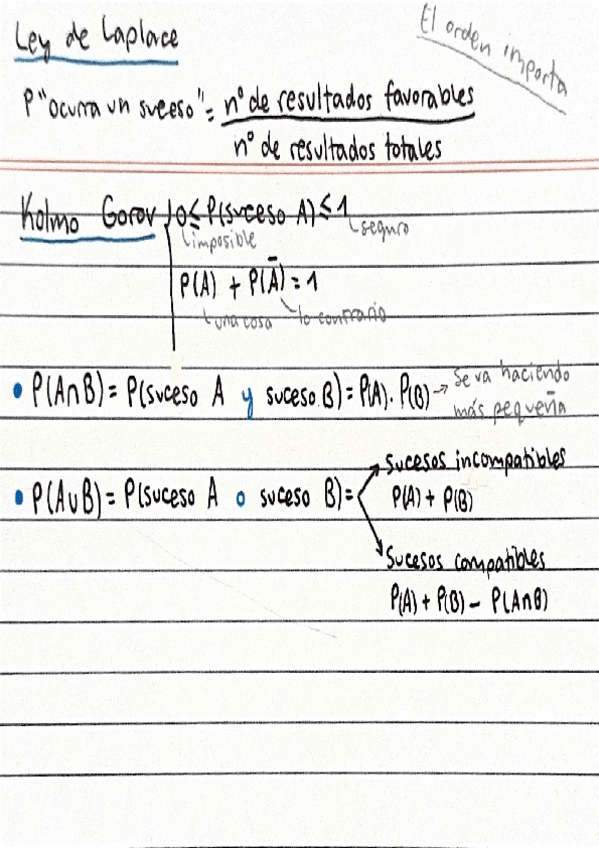 Ley de Laplace
El orden importa
P "ocurra un suceso" = nº de resultados favorables
nº de resultados totales
Kolmo Gorov 0 ≤ P(suceso A) ≤ 1
imposible
seguro
P(A) + P(Ā) = 1
una cosa
lo contrario
• P(A∩B) = P(suceso A y suceso B) = P(A) · P(B) → Se va haciendo
más pequeña
Sucesos incompatibles
• P(A∪B) = P(suceso A o suceso B) = P(A) + P(B)
Sucesos compatibles
P(A) + P(B) - P(A∩B)